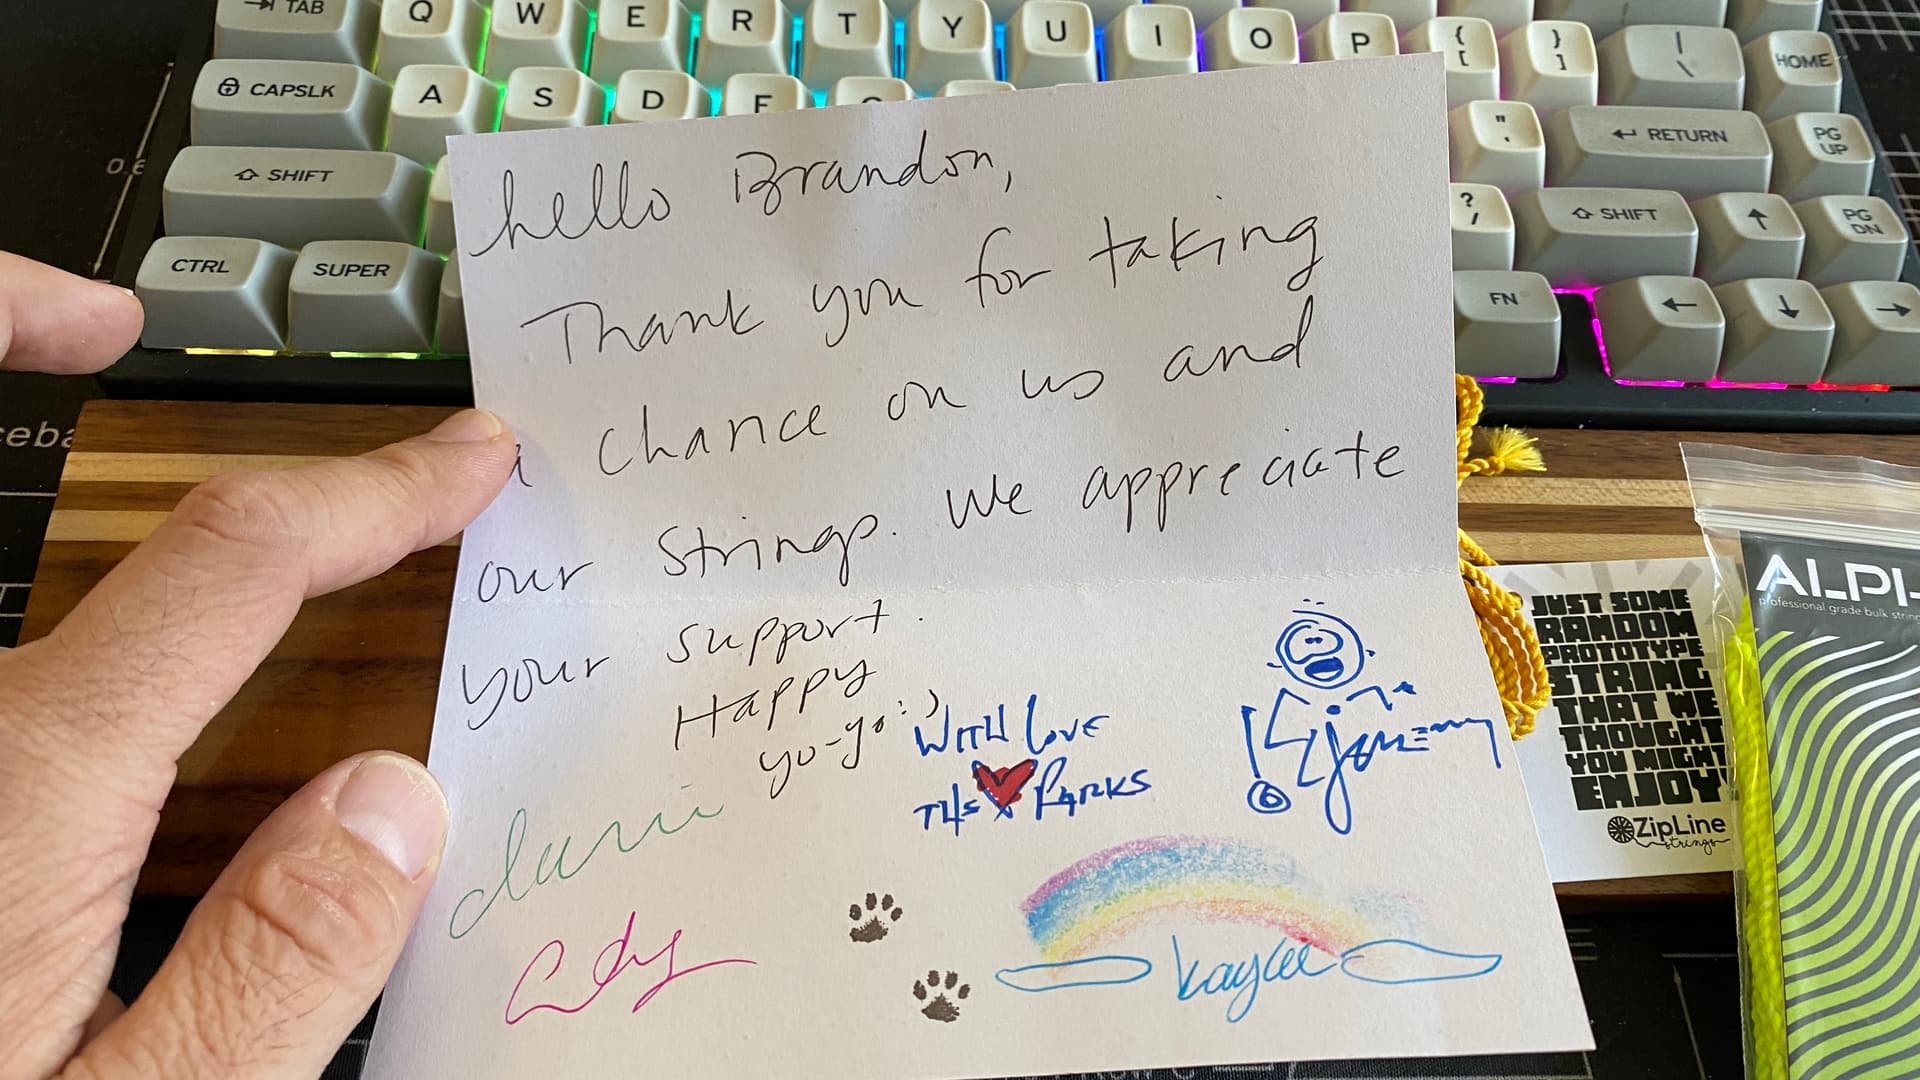 TAB
Q W E R T Y U I O P { [ } ] | \ HOME
CAPSLK A S D F " ' RETURN PG UP
SHIFT ? / SHIFT PG DN
CTRL SUPER FN
hello Brandon,
Thank you for taking
a chance on us and
our strings. We appreciate
your support.
Happy
yo-yo :)
WITH LOVE
THE PARKS
Jeremy
Cody
Kaylee
JUST SOME
RANDOM
PROTOTYPE
STRING
THAT WE
THOUGHT
YOU MIGHT
ENJOY
ZipLine
strings
ALPH
professional grade bulk string